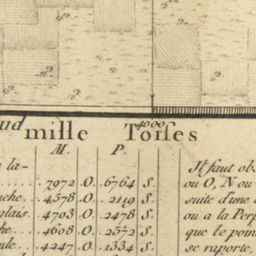 4000
ud mille Toises
M. P.
la-
7972 O. 6764 S.
che 4578 O. 2119 S.
glais. 4703 O. 2478 S.
he 4608 O. 2572 S.
4247 O. 1334 S.
Il faut obs
ou O, N ou
suite d'une
ou a la Perp
que le poin
se raporte,